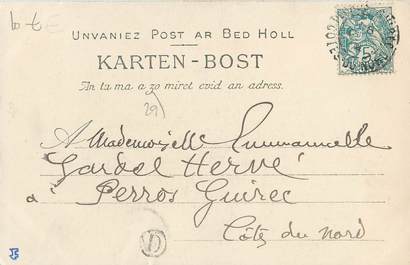 UNVANIEZ POST AR BED HOLL
KARTEN-BOST
An tu ma a zo miret evid an adress.
29
A Mademoiselle Emmanuelle
Hervé
a Perros Guirec
Côtes du Nord
D